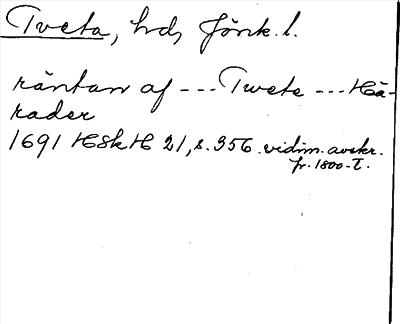 Tveta, hd, Jönk. l.
räntan af --- Twete --- Hä-
rader
1691 HSkH 21, s. 356. vidim. avskr.
fr. 1800-t.